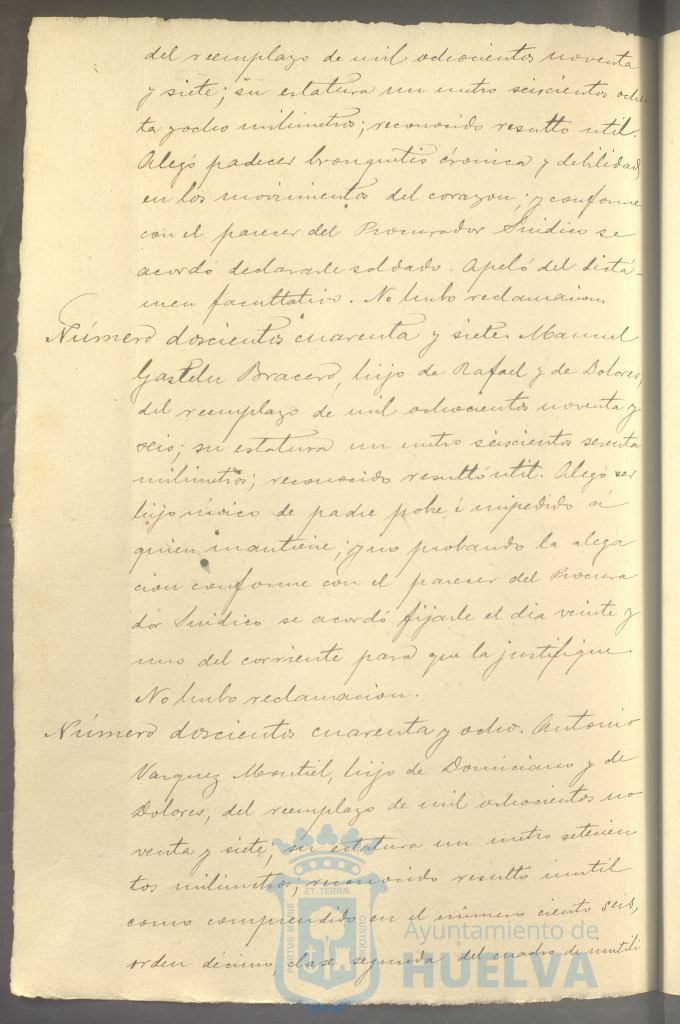 del reemplazo de mil ochocientos noventa
y siete; su estatura un metro seiscientos ochen
ta y ocho milimetros; reconocido resulto util.
Alegó padecer bronquitis crónica y debilidad
en los movimientos del corazon; y conforme
con el parecer del Procurador Sindico se
acordó declararle soldado. Apeló del dictá-
men facultativo. No hubo reclamacion.
Número doscientos cuarenta y siete. Manuel
Gastelu Bracero, hijo de Rafael y de Dolores,
del reemplazo de mil ochocientos noventa y
seis; su estatura un metro seiscientos sesenta
milimetros; reconocido resultó util. Alegó ser
hijo único de padre pobre é impedido á
quien mantiene; y no probando la alega
cion conforme con el parecer del Procura
dor Sindico se acordó fijarle el dia veinte y
uno del corriente para que la justifique.
No hubo reclamacion.
Número doscientos cuarenta y ocho. Antonio
Vazquez Montiel, hijo de Domiciano y de
Dolores, del reemplazo de mil ochocientos no
venta y siete; su estatura un metro setecien
tos milimetros; reconocido resulto inutil
como comprendido en el número ciento seis,
orden decimo, clase segunda del cuadro de inutili
PORTUS MARIS
ET TERRA
CUSTODIA
Ayuntamiento de
HUELVA